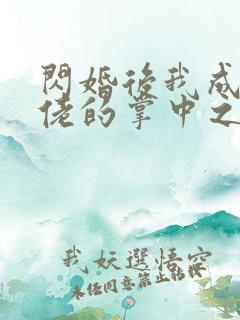 閃婚後我成
佬的掌中之
我妖選悟空
未經同意禁止轉校